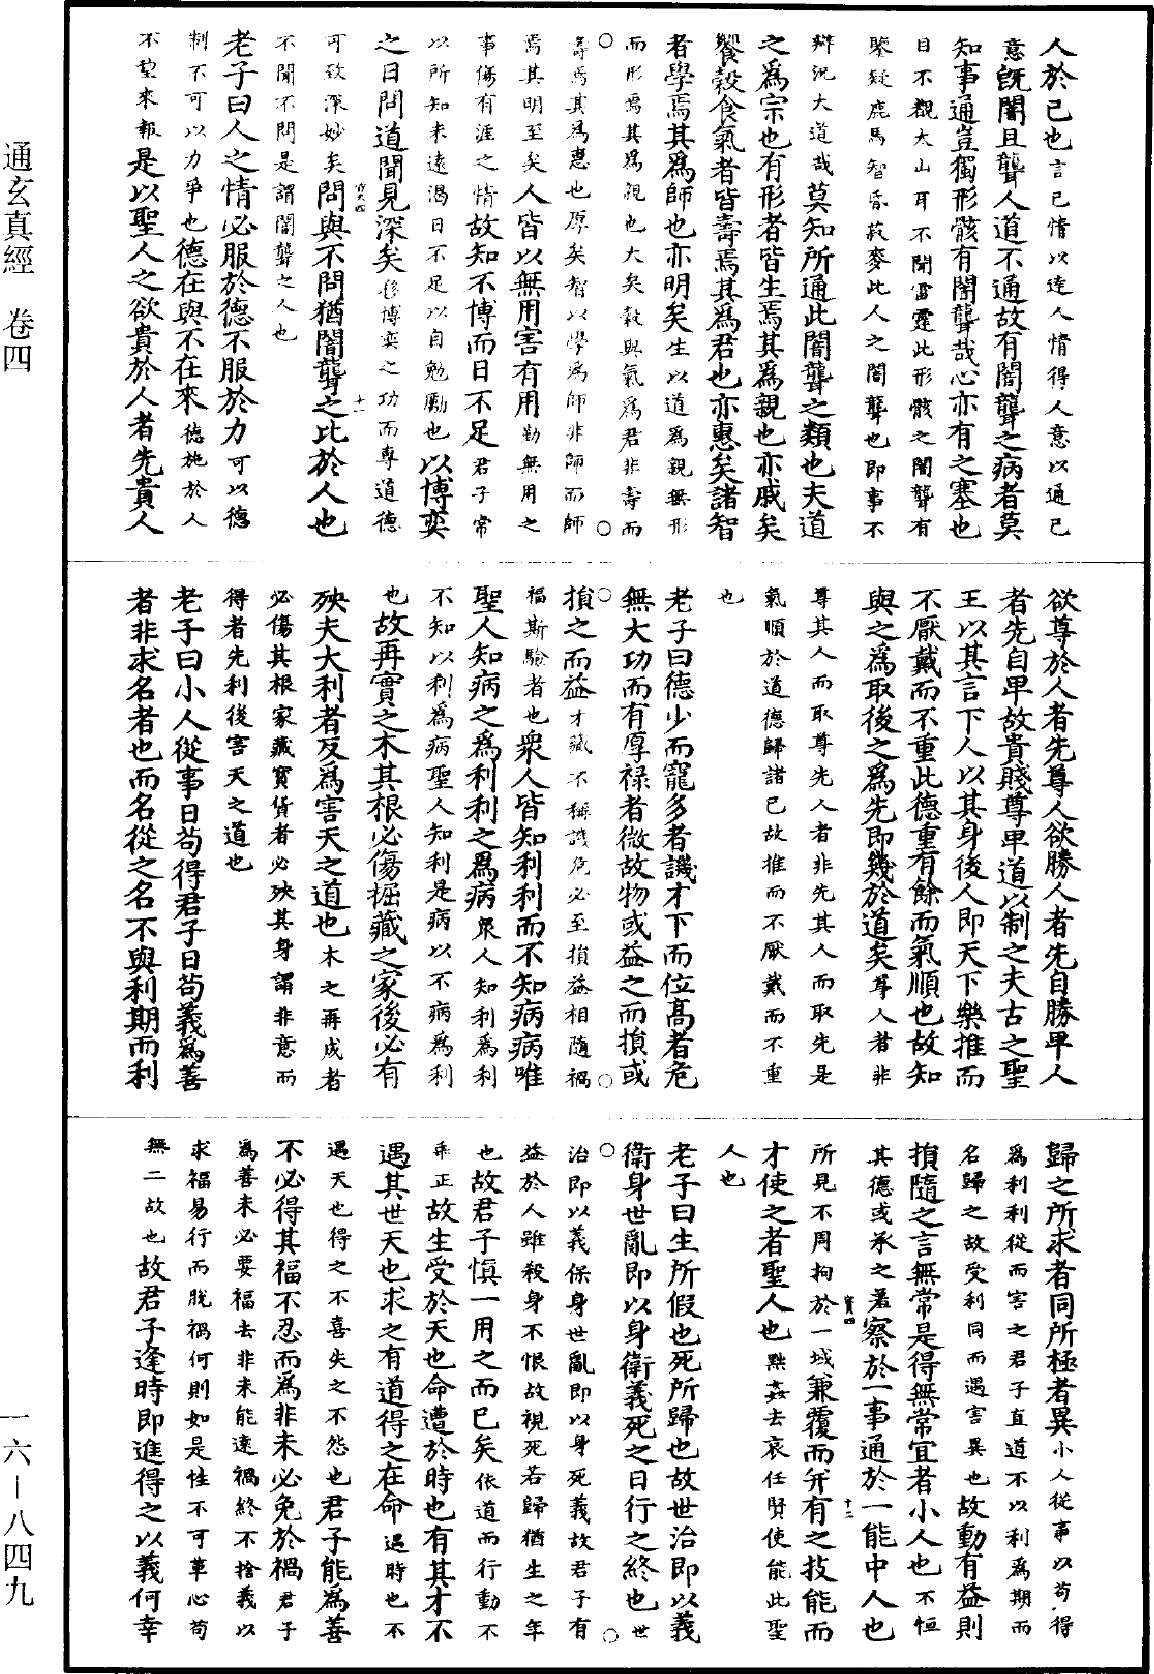 人於已也言已情以達人情得人意以通已
意旣闇且聾人道不通故有闇聾之病者莫
知事通豈獨形骸有闇聾哉心亦有之塞也
目不觀太山耳不聞雷霆此形骸之闇聾有
鑒疑鹿馬智昏菽麥此人之闇聾也即事不
辯況大道哉莫知所通此闇聾之類也夫道
之爲宗也有形者皆生焉其爲親也亦戚矣
饗穀食氣者皆壽焉其爲君也亦惠矣諸智
者學焉其爲師也亦明矣生以道爲親無形
而形焉其爲親也大矣穀與氣爲君非壽而
壽焉其爲惠也厚矣智以學爲師非師而師
焉其明至矣人皆以無用害有用勤無用之
事傷有涯之情故知不博而日不足君子常
以所知未遠渴日不足以自勉勵也以博奕
之日問道聞見深矣移博奕之功而專道德
可致深妙矣問與不問猶闇聾之比於人也
不聞不問是謂闇聾之人也
老子曰人之情必服於德不服於力可以德
制不可以力爭也德在與不在來德施於人
不望來報是以聖人之欲貴於人者先貴人
欲尊於人者先尊人欲勝人者先自勝卑人
者先自卑故貴賤尊卑道以制之夫古之聖
王以其言下人以其身後人即天下樂推而
不厭戴而不重此德重有餘而氣順也故知
與之爲取後之爲先即幾於道矣尊人者非
尊其人而取尊先人者非先其人而取先是
氣順於道德歸諸已故推而不厭戴而不重
也
老子曰德少而寵多者譏才下而位高者危
無大功而有厚祿者微故物或益之而損或
損之而益才職不稱譏危必至損益相隨禍
福斯驗者也衆人皆知利利而不知病病唯
聖人知病之爲利利之爲病衆人知利爲利
不知以利爲病聖人知利是病以不病爲利
也故再實之木其根必傷掘藏之家後必有
殃夫大利者反爲害天之道也木之再成者
必傷其根家藏寶貨者必殃其身謂非意而
得者先利後害天之道也
老子曰小人從事曰苟得君子曰苟義爲善
者非求名者也而名從之名不與利期而利
歸之所求者同所極者異小人從事以苟得
爲利利從而害之君子直道不以利爲期而
名歸之故受利同而遇害異也故動有益則
損隨之言無常是得無常宜者小人也不恒
其德或承之羞察於一事通於一能中人也
所見不周拘於一域兼覆而幷有之技能而
才使之者聖人也點姦去哀任賢使能此聖
人也
老子曰生所假也死所歸也故世治即以義
衛身世亂即以身衛義死之日行之終也世
治即以義保身世亂即以身死義故君子有
益於人雖殺身不恨故視死若歸猶生之年
也故君子慎一用之而已矣依道而行動不
乖正故生受於天也命遭於時也有其才不
遇其世天也求之有道得之在命遇時也不
遇天也得之不喜失之不怨也君子能爲善
不必得其福不忍而爲非未必免於禍君子
爲善未必要福去非未能遠禍終不捨義以
求福易行而脫禍何則如是性不可革心苟
無二故也故君子逢時即進得之以義何幸
通玄眞經 卷四
一六—八四九